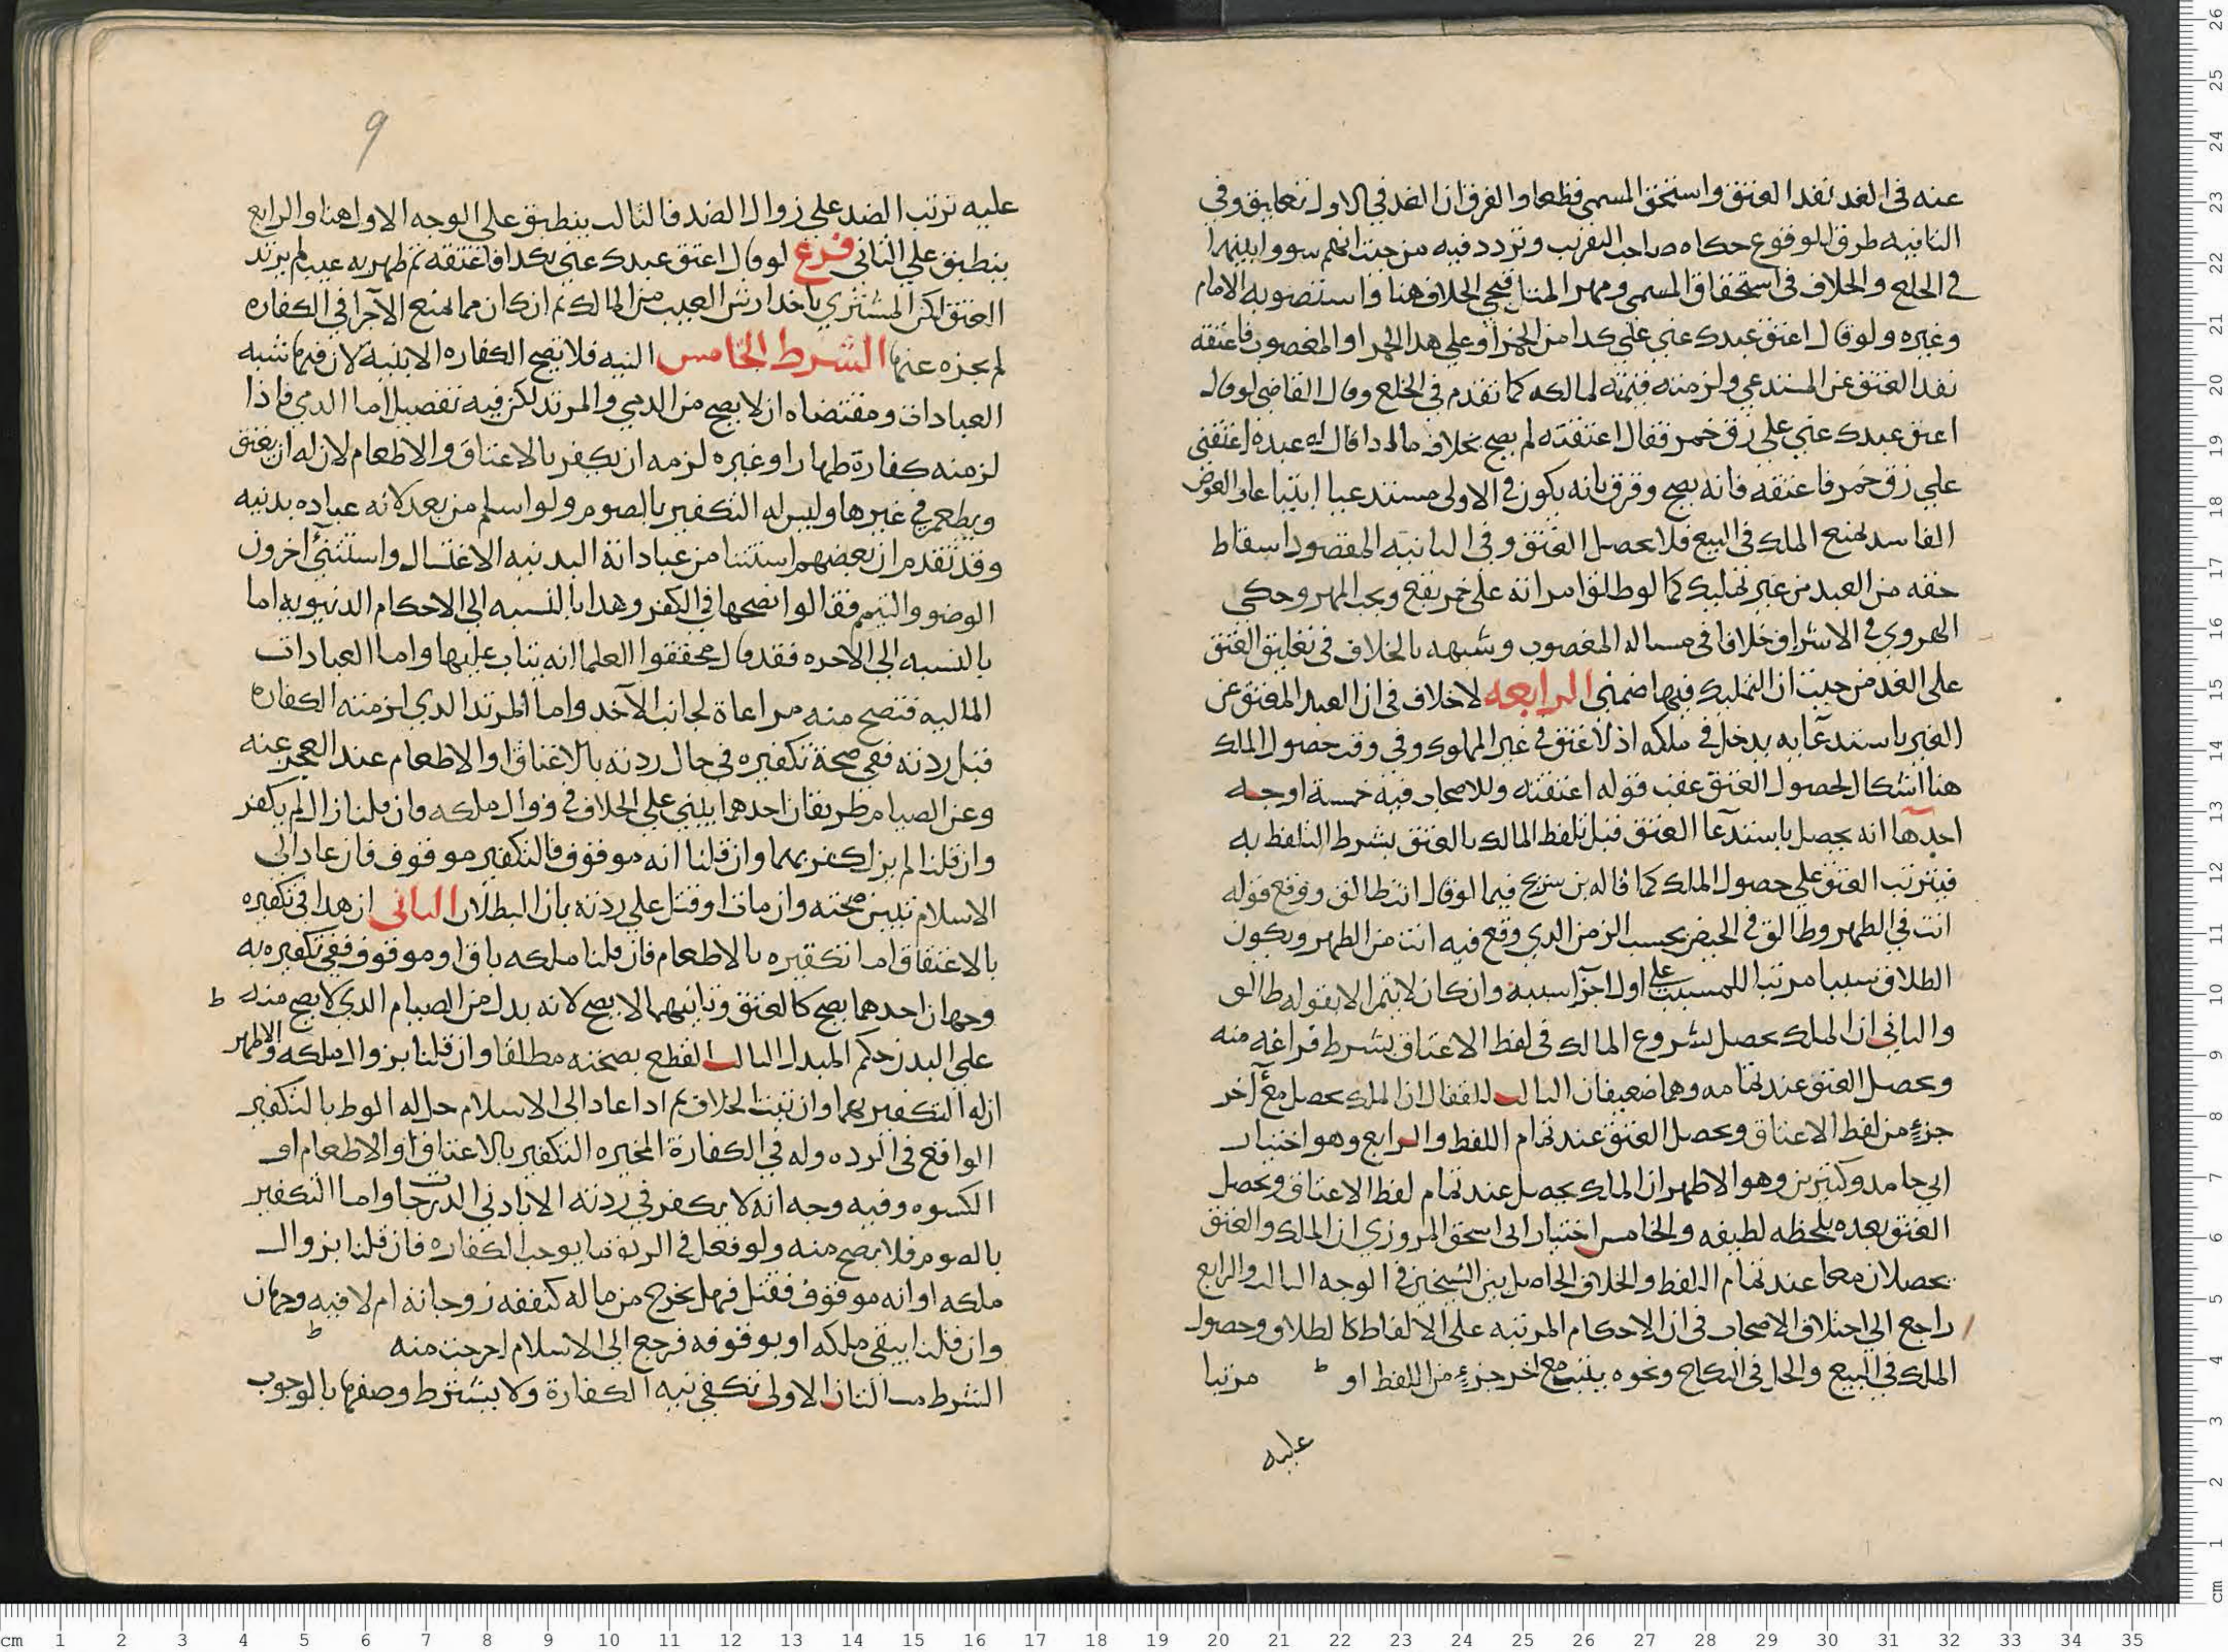 عنه في الغد نفذ العتق واستحق المسمى قطعا والفرق ان الغد في الاول تعليق وفي
الثانيه ظرف للوقوع حكاه صاحب التقريب وتردد فيه من حيث انهم سووا بينهما
في الخلع والخلاف في استحقاق المسمى ومهر المثل فيجي الخلاف هنا واستصوبه الامام
وغيره ولو قال اعتق عبدك عني علي كدا من الخمر او علي هدا الخمر او المغصوب فاعتقه
نفد العتق عن المستدعي ولزمته قيمته لمالكه كما تقدم في الخلع وقال القاضي لو قال
اعتق عبدك عني علي زق خمر فقال اعتقته لم يصح بخلاف ما لو ادا قال له عبده اعتقني
علي زق خمر فاعتقه فانه يصح وفرق بانه يكون في الاولى مستدعيا ابتياعا والعوض
الفاسد يمنع الملك في البيع فلا يحصل العتق وفي الثانيه المقصود اسقاط
حقه من العبد من غير تمليك كما لو طلق امراته علي خمر يقع ويجب المهر وحكي
الهروي في الاشراف خلافا في مساله المغصوب وشبهه بالخلاف في تعليق العتق
على الغد من حيث ان التمليك فيها ضمني الرابعه لا خلاف في ان العبد المعتق عن
الغير باستدعآيه يدخل في ملكه اذ لا عتق في غير المملوك وفي وقت حصول الملك
هنا اشكال لحصول العتق عقب قوله اعتقته وللاصحاب فيه خمسة اوجه
احدها انه يحصل باستدعآ العتق قبل تلفظ المالك بالعتق بشرط التلفظ به
فيترتب العتق علي حصول الملك كما قاله بن سريج فيما لو قال انت طالق ووقع قوله
انت في الطهر وطالق في الحيض يحسب الزمن الدي وقع فيه انت من الطهر ويكون
الطلاق سببا مرتبا للمسبب علي اول اجزآ سببه وان كان لا يتم الا بقوله طالق
والثاني ان الملك يحصل بشروع المالك في لفظ الاعتاق بشرط فراغه منه
ويحصل العتق عند تمامه وهما ضعيفان الثالث للقفال ان الملك يحصل مع آخر
جزء من لفظ الاعتاق ويحصل العتق عند تمام اللفظ والرابع وهو اختيار
ابي حامد وكثيرين وهو الاظهر ان الملك يحصل عند تمام لفظ الاعتاق ويحصل
العتق بعده بلحظه لطيفه والخامس اختيار ابي اسحق المروزي ان الملك والعتق
يحصلان معا عند تمام اللفظ والخلاف الحاصل بين الشيخين في الوجه الثالث والرابع
راجع الي اختلاف الاصحاب في ان الاحكام المرتبه علي الالفاظ كالطلاق وحصول
الملك في البيع والحل في النكاح ونحوه يثبت مع اخر جزء من اللفظ او مرتبا
عليه
9
عليه ترتب الضد علي زوال الضد فالثالث ينطبق علي الوجه الاول هنا والرابع
ينطبق علي الثاني فرع لو قال اعتق عبدك عني بكدا فاعتقه ثم ظهر به عيب لم يرتد
العتق لكن المشتري ياخد ارش العيب من المالك ثم ان كان مما يمنع الاجزآ في الكفاره
لم يجزه عنها الشرط الخامس النيه فلا تصح الكفاره الا بنية لان فيها شبه
العبادات ومقتضاه ان لا يصح من الدمي والمرتد لكن فيه تفصيل اما الدمي فاذا
لزمته كفارة ظهار او غيره لزمه ان يكفر بالاعتاق والاطعام لان له ان يعتق
ويطعم في غيرها وليس له التكفير بالصوم ولو اسلم من بعد لانه عباده بدنيه
وقد تقدم ان بعضهم استثنا من عباداته البدنيه الاغتسال واستثنى آخرون
الوضو والتيمم فقالوا تصحها في الكفر وهدا بالنسبه الي الاحكام الدنيويه اما
بالنسبه الي الاخره فقد قال محققوا العلما انه يثاب عليها واما العبادات
الماليه فتصح منه مراعاة لجانب الآخد واما المرتد الدي لزمته الكفارة
قبل ردته ففي صحة تكفيره في حال ردته بالاعتاق او الاطعام عند العجز عنه
وعن الصيام طريقان احدهما يبني علي الخلاف في زوال ملكه وان قلنا زال لم يكفر
وان قلنا لم يزل كفر بهما وان قلنا انه موقوف فالتكفير موقوف فان عاد الي
الاسلام تبين صحته وان مات او قتل علي ردته بان البطلان الثاني ان هدا في تكفيره
بالاعتقاق اما تكفيره بالاطعام فان قلنا ملكه باق او موقوف ففي تكفيره به
وجهان احدهما يصح كالعتق وثانيهما لا يصح لانه بدل من الصيام الدي لا يصح منه
علي البدن حكم المبدل الثالث القطع بصحته مطلقا وان قلنا بزوال ملكه والاظهر
ان له التكفير بهما وان ثبت الخلاف ثم ادا عاد الي الاسلام حل له الوط بالتكفير
الواقع في الرده وله في الكفارة المخيره التكفير بالاعتاق او الاطعام او
الكسوه وفيه وجه انه لا يكفر في ردته الا بادني الدرجات واما التكفير
بالصوم فلا يصح منه ولو فعل في الردة ما يوجب الكفاره فان قلنا بزوال
ملكه او انه موقوف فقتل فهل يخرج من ماله كنفقه زوجاته ام لا فيه وجهان
وان قلنا يبقي ملكه او بوقوفه فرجع الي الاسلام اخرجت منه
الاولى تكفي نيه الكفارة ولا يشترط وصفها بالوجوب